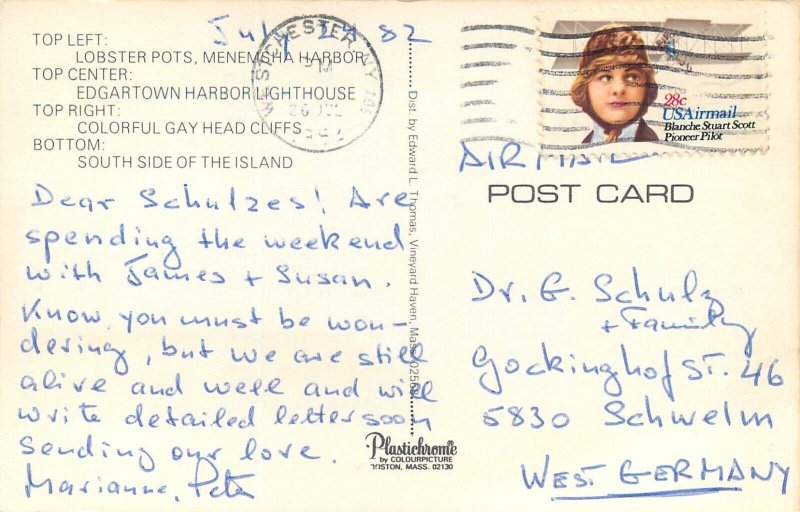 July 24 82
TOP LEFT:
LOBSTER POTS, MENEMSHA HARBOR
TOP CENTER:
EDGARTOWN HARBOR LIGHTHOUSE
TOP RIGHT:
COLORFUL GAY HEAD CLIFFS
BOTTOM:
SOUTH SIDE OF THE ISLAND
Dear Schulzes! Are
spending the weekend
with James + Susan.
Know, you must be won-
dering, but we are still
alive and well and will
write detailed letter soon
Sending our love.
Marianne, Peter
WESTCHESTER NY 105
PM
26 JUL
1982
Dist. by Edward L. Thomas, Vineyard Haven, Mass. 02568
Plastichrome
by COLOURPICTURE
BOSTON, MASS. 02130
28c
USAirmail
Blanche Stuart Scott
Pioneer Pilot
AIR MAIL
POST CARD
Dr. G. Schulz
+ Family
Gockinghof ST. 46
5830 Schwelm
WEST GERMANY